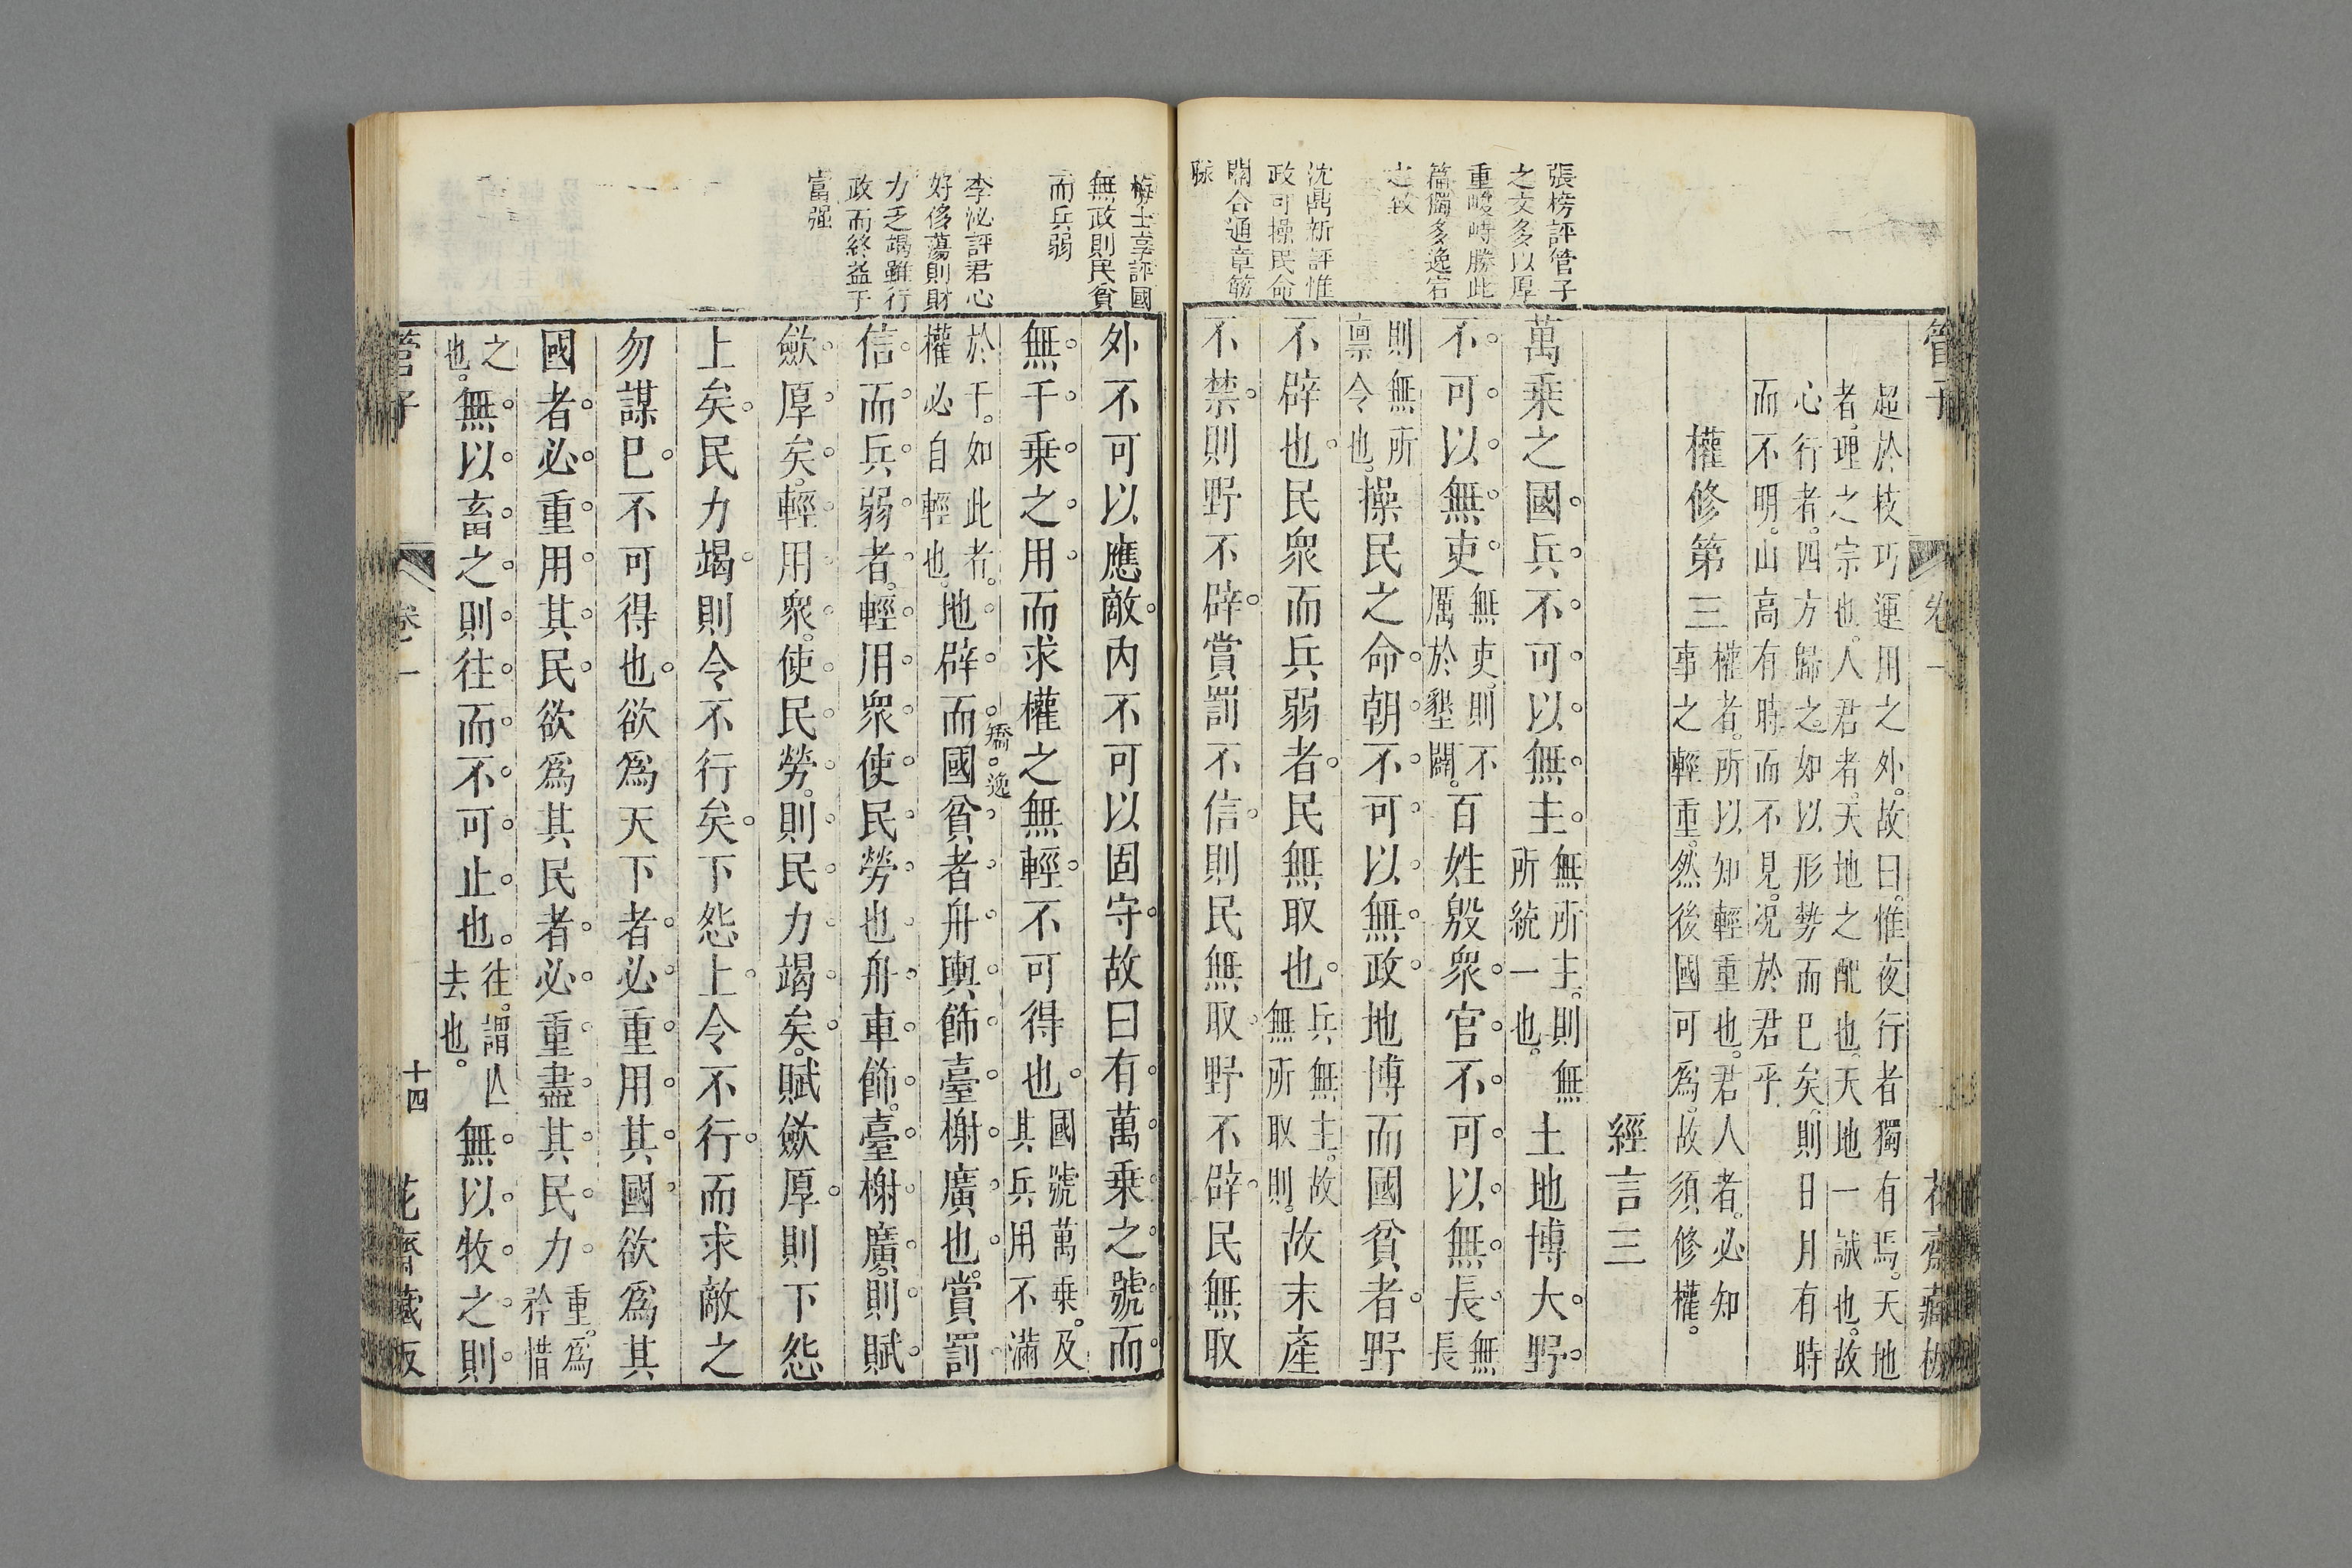 管子
卷一
花齋藏板
張榜評管子
之文多以厚
重峻峙勝此
篇獨多逸宕
之致
沈鼎新評惟
政可操民命
關合通章筋
脉
超於枝巧運用之外。故曰。惟夜行者獨有焉。天地
者。理之宗也。人君者。天地之配也。天地一誠也。故
心行者。四方歸之。如以形勢而巳矣。則日月有時
而不明。山高有時而不見。况於君乎
權修第三
權者。所以知輕重也。君人者。必知
事之輕重。然後國可爲。故須修權。
經言三
萬乗之國兵不可以無主
無所主。則無
所統一也。
土地博大野
不可以無吏
無吏。則不
厲於墾闢。
百姓殷衆官不可以無長
無
長
則無所
禀令也。
操民之命朝不可以無政地博而國貧者野
不辟也民衆而兵弱者民無取也
兵無主。故
無所取則。
故末產
不禁則野不辟賞罰不信則民無取野不辟民無取
梅士享評國
無政則民貧
而兵弱
李泌評君心
好侈蕩則財
力乏竭雖行
政而終益于
富强
外不可以應敵内不可以固守故曰有萬乗之號而
無千乗之用而求權之無輕不可得也
國號萬乗。及
其兵用不滿
於千。如此者。
權必自輕也。
地辟而國貧者舟輿飾臺榭廣也。賞罰
矯逸
信而兵弱者。輕用衆使民勞也舟車飾。臺榭廣。則賦
歛厚矣。輕用衆。使民勞。則民力竭矣。賦歛厚則下怨
上矣民力竭則令不行矣下怨上令不行而求敵之
勿謀巳不可得也欲爲天下者必重用其國欲爲其
國者必重用其民欲爲其民者必重盡其民力
重。爲
矜惜
之
也。
無以畜之則往而不可止也
往。謂亾
去也。
無以牧之則
管子
卷一
十四
花齋藏板